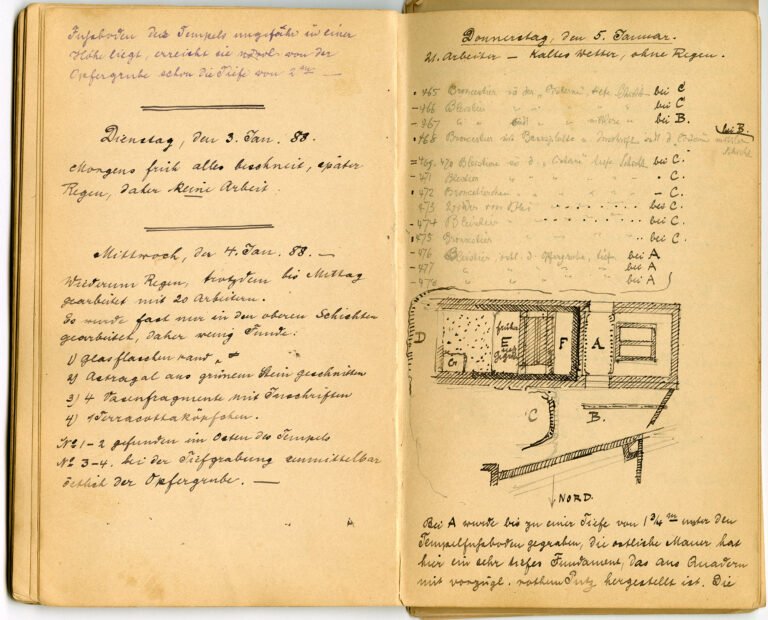 Fussboden des Tempels ungefähr in einer
Höhe liegt, erreicht sie von der
Opfergrube schon die Tiefe von 2 m —
Dienstag, den 3. Jan. 88.
Morgens früh alles beschneit, später
Regen, daher keine Arbeit.
Mittwoch, den 4. Jan. 88. —
Wiederum Regen, trotzdem bis Mittag
gearbeitet mit 20 Arbeitern.
Es wurde fast nur in den oberen Schichten
gearbeitet, daher wenig Funde:
1) Glasflaschenrand
2) Astragal aus grünem Stein geschnitten
3) 4 Vasenfragmente mit Inschriften
4) 1 Terracottaköpfchen.
No. 1-2 gefunden im Osten des Tempels
No. 3-4. bei der Tiefgrabung unmittelbar
östlich der Opfergrube. —
Donnerstag, den 5. Januar.
21. Arbeiter — Kaltes Wetter, ohne Regen.
465 Broncestier in der tiefe Schicht bei C
466 Bleistier " " " bei C
467 " " mittlere " bei B.
468 Broncestier mit Basisplatte u. Inschrift bei B. mittlere Schicht
469. 470 Bleistier in d. tiefe Schicht bei C.
471 Bleistier " " " C.
472 " " C.
473 bei C.
474 Bleistier bei C.
475 Broncestier bei C.
476 Bleistier östl. d. Opfergrube, tiefe bei A
477 " " bei A
478 " " bei A
D
G
E
F
A
C
B.
NORD.
Bei A wurde bis zu einer Tiefe von 1 3/4 m unter den
Tempelfussboden gegraben, die östliche Mauer hat
hier ein sehr tiefes Fundament, das aus Quadern
mit vorzügl. rothem Putz hergestellt ist. Die